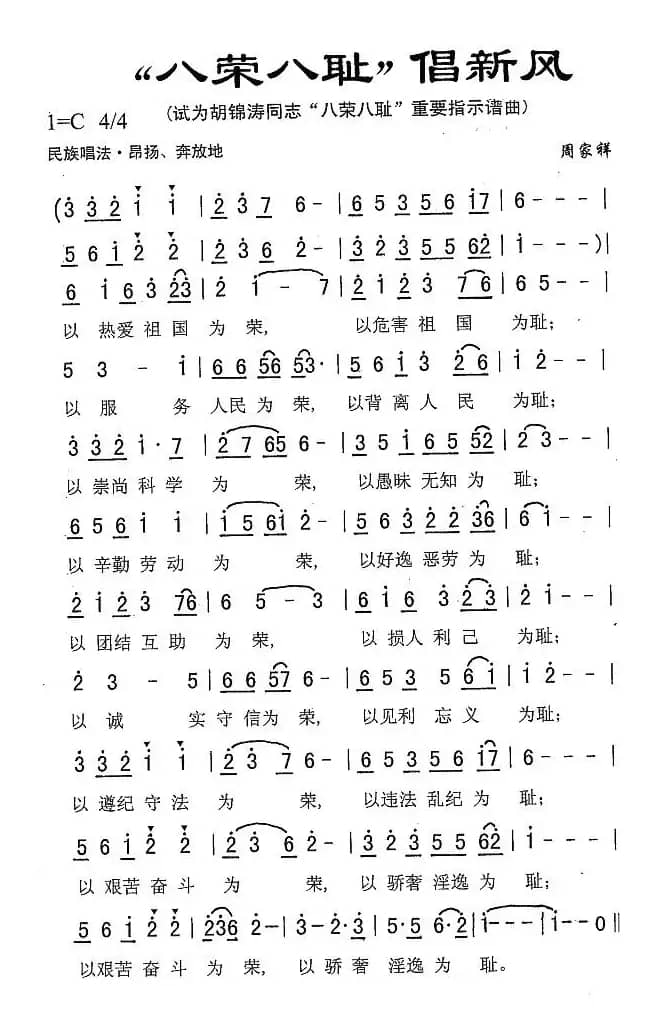 “八荣八耻”倡新风
(试为胡锦涛同志“八荣八耻”重要指示谱曲)
1=C 4/4
民族唱法·昂扬、奔放地 周家祥
(3 3 2 i i | 2 3 7 6 - | 6 5 3 5 6 i7 | 6 - - - |
5 6 i 2 2 | 2 3 6 2 - | 3 2 3 5 5 62 | i - - - )|
6 i 6 3 23 | 2 i - 7 | 2 i 2 3 7 6 | 6 5 - - |
以 热爱 祖 国 为 荣, 以危害 祖 国 为耻;
5 3 - i | 6 6 56 53· | 5 6 i 3 2 6 | i 2 - - |
以 服 务 人民 为 荣, 以背 离 人 民 为耻;
3 3 2 i · 7 | 2 7 65 6 - | 3 5 i 6 5 52 | 2 3 - - |
以 崇尚 科 学 为 荣, 以愚昧 无知 为 耻;
6 5 6 i i | i 5 6i 2 - | 5 6 3 2 2 36 | 6 i - - |
以 辛勤 劳 动 为 荣, 以好逸 恶劳 为 耻;
2 i 2 3 76 | 6 5 - 3 | 6 i 6 3 2 3 | 2 i - - |
以 团结 互 助 为 荣, 以 损人 利 己 为耻;
2 3 - 5 | 6 6 57 6 - | 6 5 3 5 6 i | i 2 - - |
以 诚 实 守 信为 荣, 以见利 忘 义 为耻;
3 3 2 i i | 2 3 7 6 - | 6 5 3 5 6 i7 | 6 - - - |
以 遵纪 守 法 为 荣, 以违法 乱纪 为 耻;
5 6 i 2 2 | 2 3 6 2 - | 3 2 3 5 5 62 | i - - - |
以 艰苦 奋 斗 为 荣, 以 骄奢 淫逸 为 耻;
5 6 i 2 2 | 236 2 - - | 3 - 2 · 3 | 5 · 5 6 · 2 | i - - - | i - - 0 ‖
以艰苦 奋 斗 为 荣, 以 骄 奢 淫逸 为 耻。